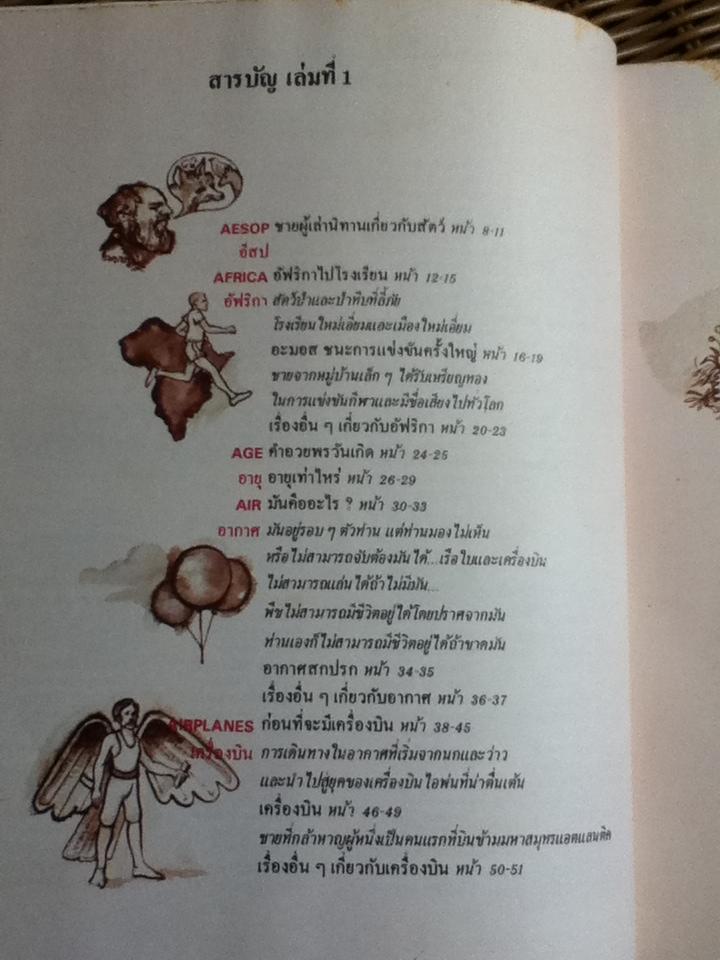 สารบัญ เล่มที่ 1
AESOP ชายผู้เล่านิทานเกี่ยวกับสัตว์ หน้า 8-11
อีสป
AFRICA อัฟริกาไปโรงเรียน หน้า 12-15
อัฟริกา สัตว์ป่าและป่าทึบที่ลี้ภัย
โรงเรียนใหม่เอี่ยมและเมืองใหม่เอี่ยม
อะมอส ชนะการแข่งขันครั้งใหญ่ หน้า 16-19
ชายจากหมู่บ้านเล็ก ๆ ได้รับเหรียญทอง
ในการแข่งขันกีฬาและมีชื่อเสียงไปทั่วโลก
เรื่องอื่น ๆ เกี่ยวกับอัฟริกา หน้า 20-23
AGE คำอวยพรวันเกิด หน้า 24-25
อายุ อายุเท่าไหร่ หน้า 26-29
AIR มันคืออะไร ? หน้า 30-33
อากาศ มันอยู่รอบ ๆ ตัวท่าน แต่ท่านมองไม่เห็น
หรือไม่สามารถจับต้องมันได้...เรือใบและเครื่องบิน
ไม่สามารถแล่นได้ถ้าไม่มีมัน...
พืชไม่สามารถมีชีวิตอยู่ได้โดยปราศจากมัน
ท่านเองก็ไม่สามารถมีชีวิตอยู่ได้ถ้าขาดมัน
อากาศสกปรก หน้า 34-35
เรื่องอื่น ๆ เกี่ยวกับอากาศ หน้า 36-37
AIRPLANES ก่อนที่จะมีเครื่องบิน หน้า 38-45
เครื่องบิน การเดินทางในอากาศที่เริ่มจากนกและว่าว
และนำไปสู่ยุคของเครื่องบินไอพ่นที่น่าตื่นเต้น
เครื่องบิน หน้า 46-49
ชายที่กล้าหาญผู้หนึ่งเป็นคนแรกที่บินข้ามมหาสมุทรแอตแลนติค
เรื่องอื่น ๆ เกี่ยวกับเครื่องบิน หน้า 50-51